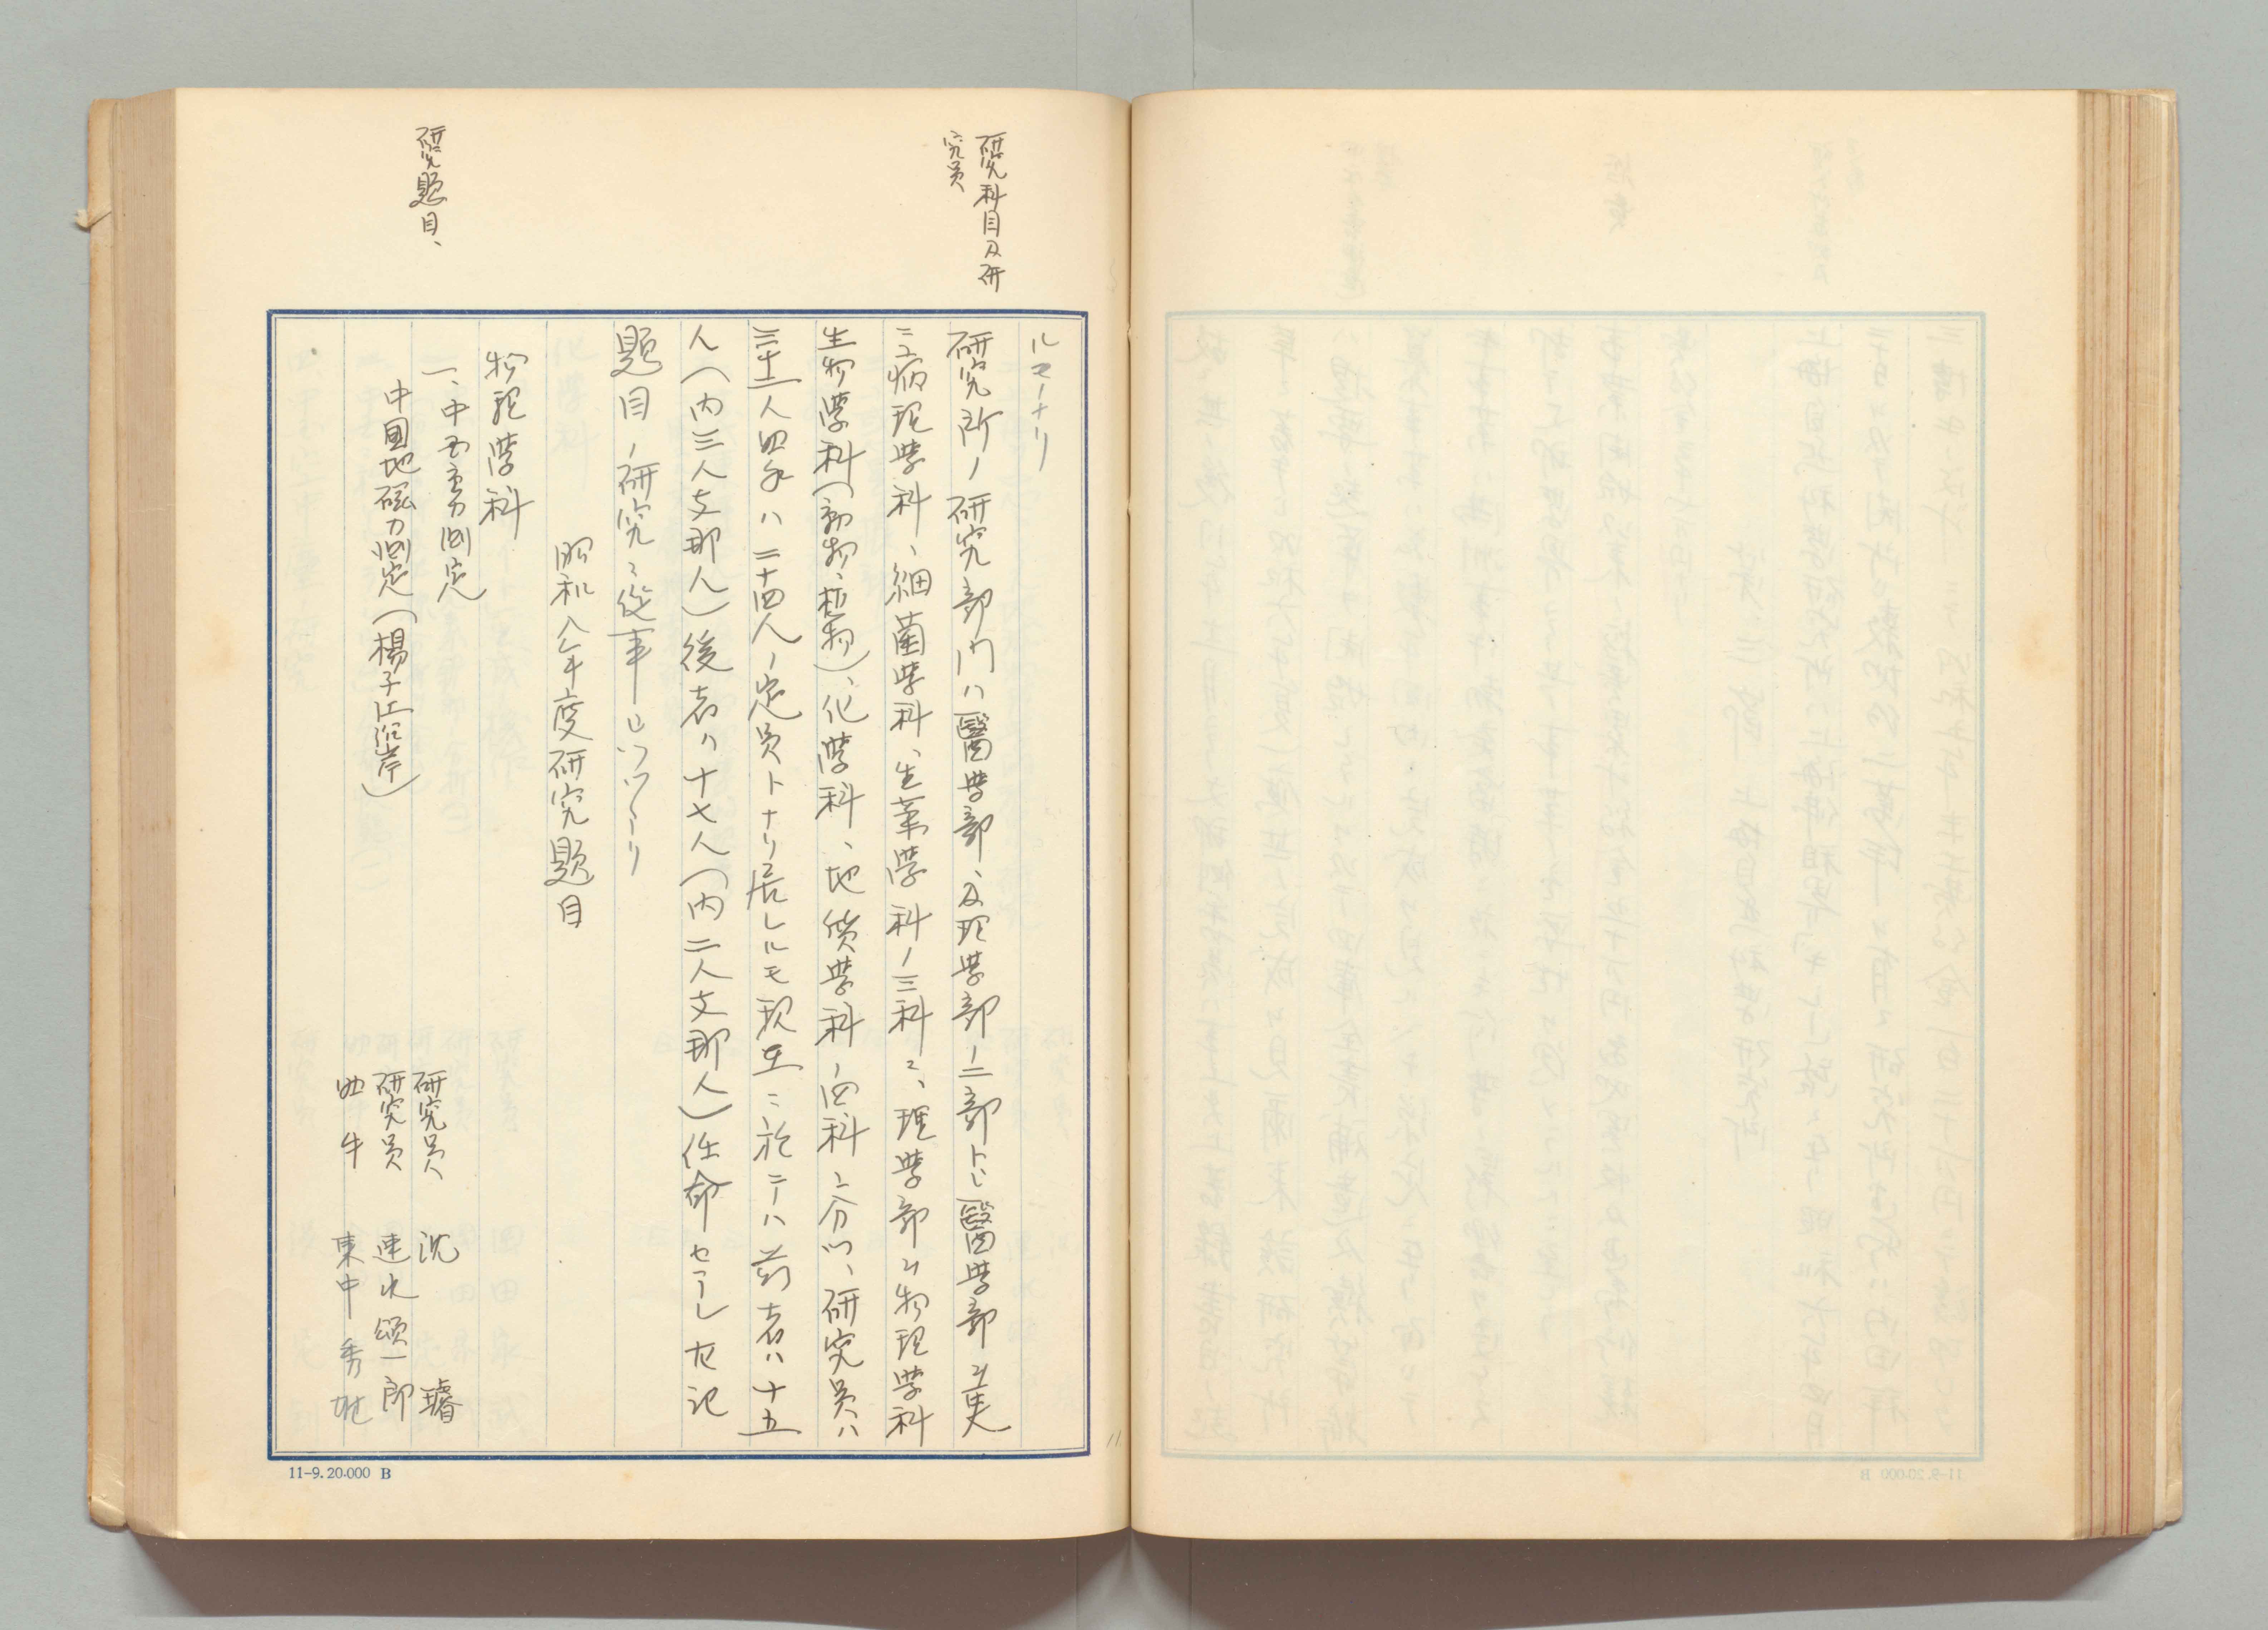 研究科目及研
究員
ルモノナリ
研究所ノ研究部門ハ醫学部、及理学部ノ二部トシ醫学部ハ更
ニ病理学科、細菌学科、生薬学科ノ三科ニ、理学部ハ物理学科
生物学科(動物、植物)、化学科、地質学科ノ四科ニ分ツ、研究員ハ
三十一人助手ハ二十四人ノ定員トナリ居レルモ現在ニ於テハ前者ハ十五
人(内三人支那人)後者ハ十七人(内二人支那人)任命セラレ左記
題目ノ研究ニ従事シツツアリ
昭和八年度研究題目
物理学科
一、中国重力測定
研究員 沈 璿
研究題目、
中国地磁力測定(楊子江沿岸)
研究員 速水頌一郎
助手 東中秀雄
11-9. 20.000 B